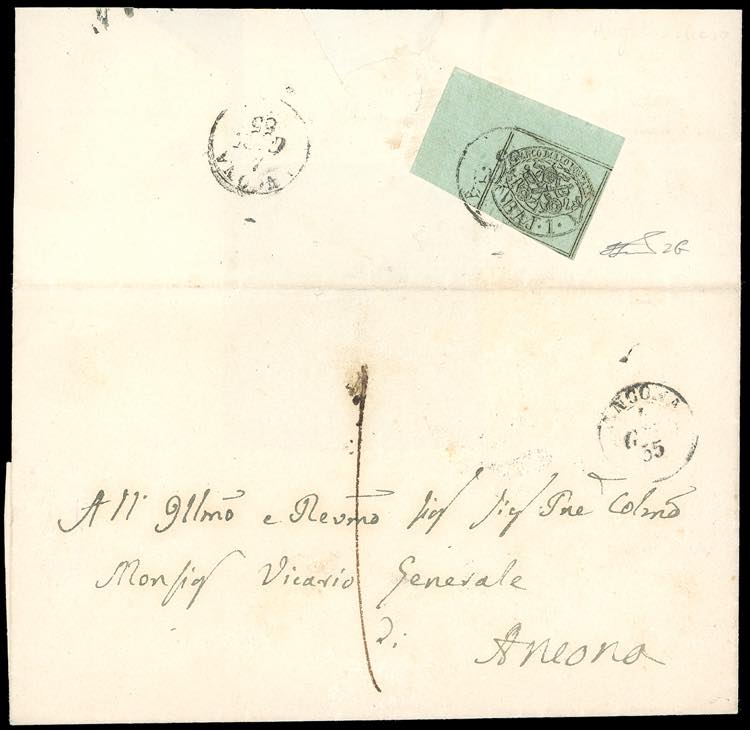 FRANCO BOLLO POSTALE
BAJ. 1.
26
ANCONA
G
55
All' Illmo e Revmo Sig Sig Pne Colmo
Monsig Vicario Generale
di
Ancona